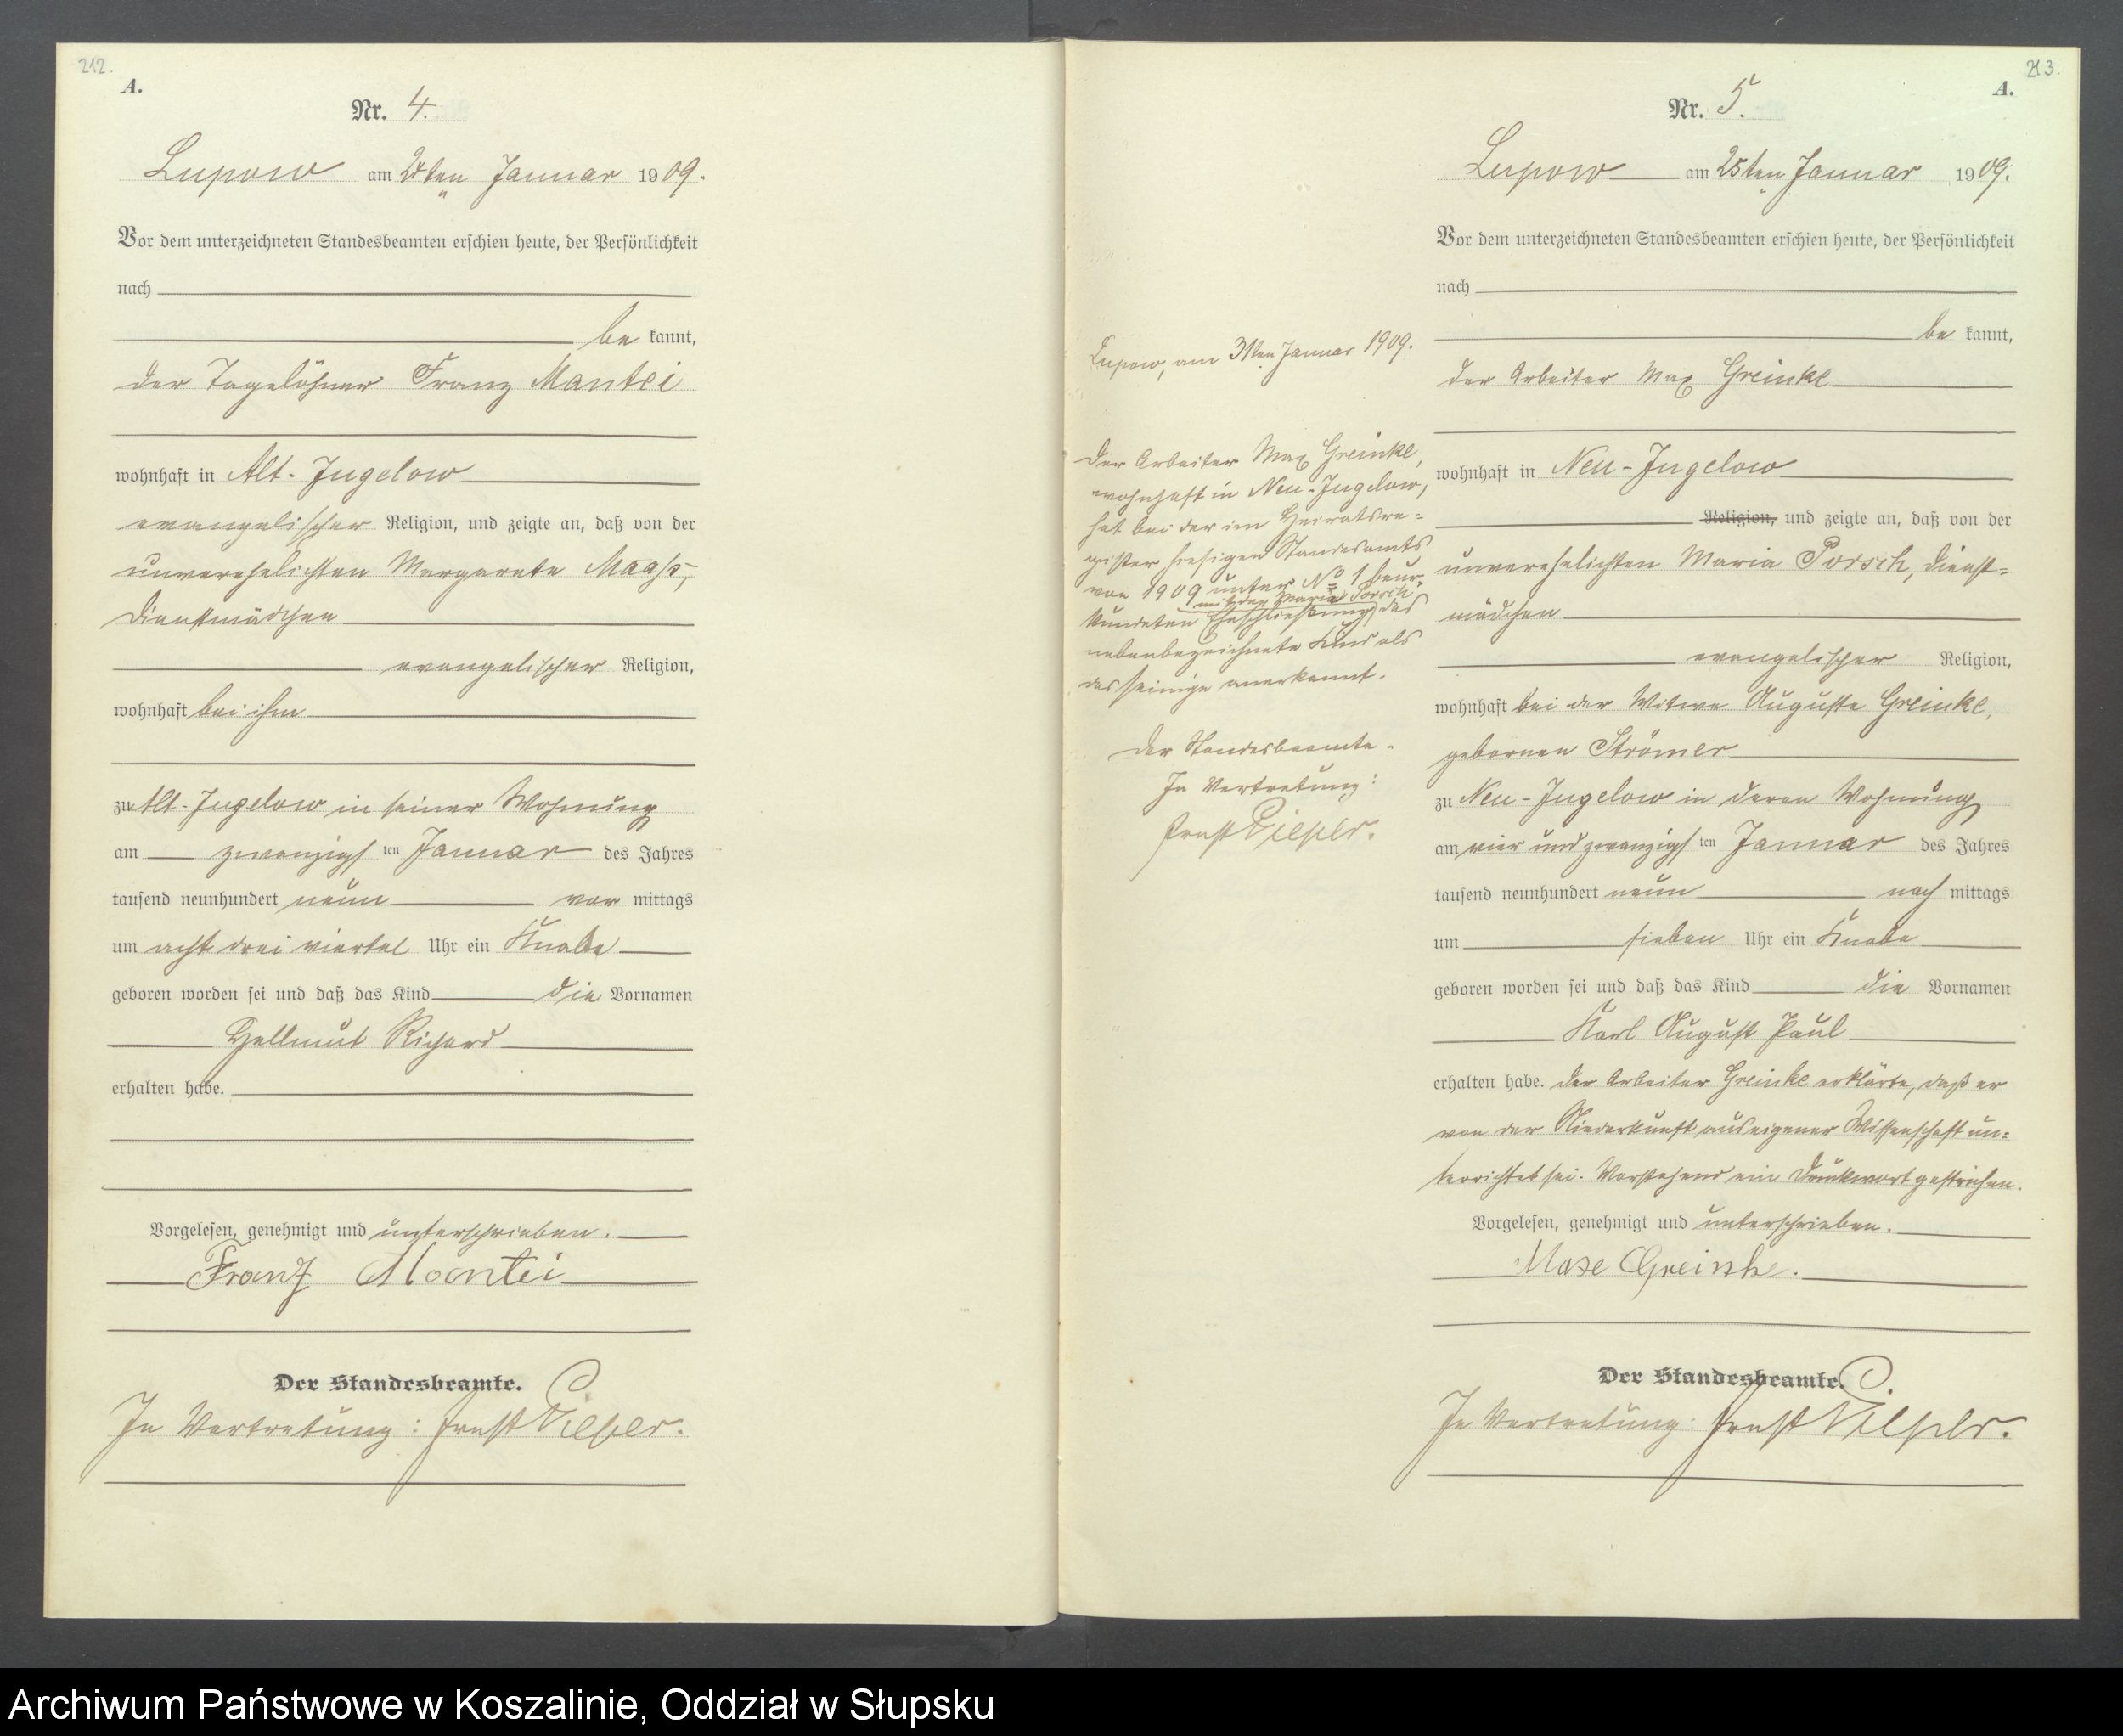 212.
A.
Nr. 4.
Lupow am 21ten Januar 1909.
Vor dem unterzeichneten Standesbeamten erschien heute, der Persönlichkeit
nach
be kannt,
der Tagelöhner Franz Mantei
wohnhaft in Alt-Jugelow
evangelischer Religion, und zeigte an, daß von der
unverehelichten Margarete Maaß,
Dienstmädchen
evangelischer Religion,
wohnhaft bei ihm
zu Alt-Jugelow in seiner Wohnung
am zwanzigsten Januar des Jahres
tausend neunhundert neun vor mittags
um acht drei viertel Uhr ein Knabe
geboren worden sei und daß das Kind die Vornamen
Hellmut Richard
erhalten habe.
Vorgelesen, genehmigt und unterschrieben.
Franz Mantei
Der Standesbeamte.
In Vertretung: Ernst Pieper.
213.
A.
Nr. 5.
Lupow am 25ten Januar 1909.
Vor dem unterzeichneten Standesbeamten erschien heute, der Persönlichkeit
nach
be kannt,
der Arbeiter Max Greinke
wohnhaft in Neu-Jugelow
Religion, und zeigte an, daß von der
unverehelichten Maria Porsch, Dienst=
mädchen
evangelischer Religion,
wohnhaft bei der Witwe Auguste Greinke,
gebornen Strömer
zu Neu-Jugelow in deren Wohnung
am vier und zwanzigsten Januar des Jahres
tausend neunhundert neun nach mittags
um sieben Uhr ein Knabe
geboren worden sei und daß das Kind die Vornamen
Karl August Paul
erhalten habe. Der Arbeiter Greinke erklärte, daß er
von der Niederkunft aus eigener Wissenschaft un=
terrichtet sei. Vorstehend ein Druckwort gestrichen.
Vorgelesen, genehmigt und unterschrieben.
Max Greinke.
Der Standesbeamte.
In Vertretung: Ernst Pieper.
Lupow, am 31ten Januar 1909.
Der Arbeiter Max Greinke,
wohnhaft in Neu-Jugelow,
hat bei der im Heiratsre=
gister hiesigen Standesamts
von 1909 unter No 1 beur=
mit der Maria Porsch
kundeten Eheschließung das
nebenbezeichnete Kind als
das seinige anerkannt.
Der Standesbeamte.
In Vertretung:
Ernst Pieper.
Archiwum Państwowe w Koszalinie, Oddział w Słupsku